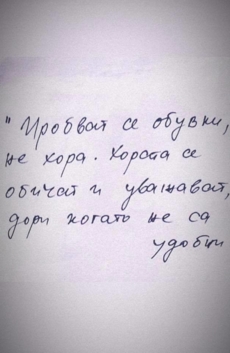 " Пробват се обувки,
не хора. Хората се
обичат и уважават,
дори когато не са
удобни